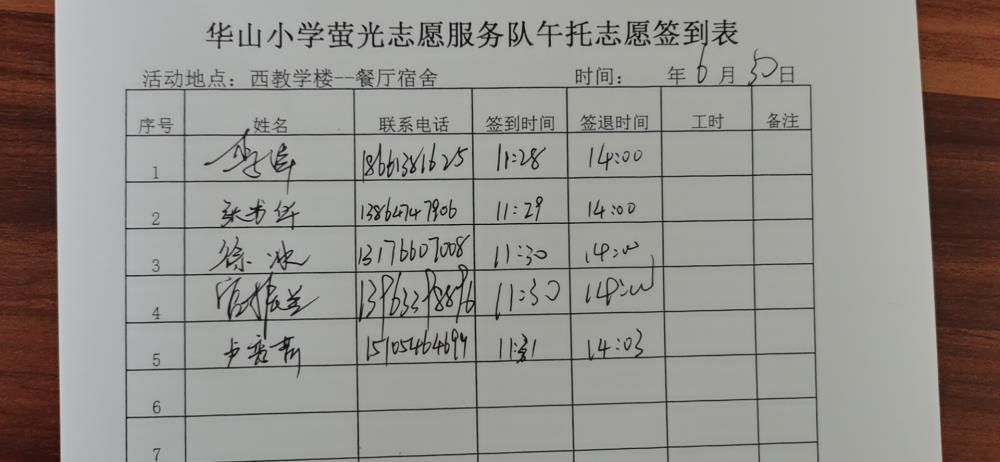 华山小学萤光志愿服务队午托志愿签到表
活动地点：西教学楼--餐厅宿舍 时间： 年 6 月 30 日
序号 姓名 联系电话 签到时间 签退时间 工时 备注
1 18661381625 11:28 14:00
2 张书华 13864747906 11:29 14:00
3 徐冰 13176607008 11:30 14:00
4 11:30 14:00
5 卢秀菊 15105464694 11:31 14:03
6
7